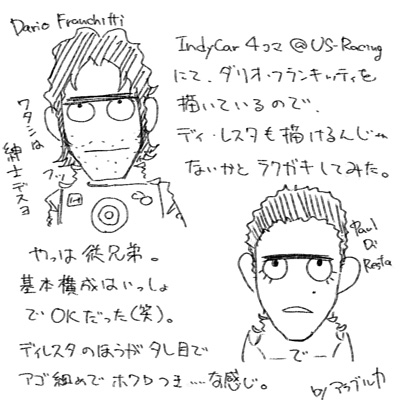 Dario Franchitti
IndyCar 4コマ @US-Racing
にて、ダリオ・フランキッティを
描いているので、
ディ・レスタも描けるんじゃ
ないかとラクガキしてみた。
ワタシは
紳士デスヨ
フッ
Paul
Di
Resta
やっぱ従兄弟。
基本構成はいっしょ
でOKだった(笑)。
ディレスタのほうがタレ目で
アゴ細めでホクロつき…な感じ。
で